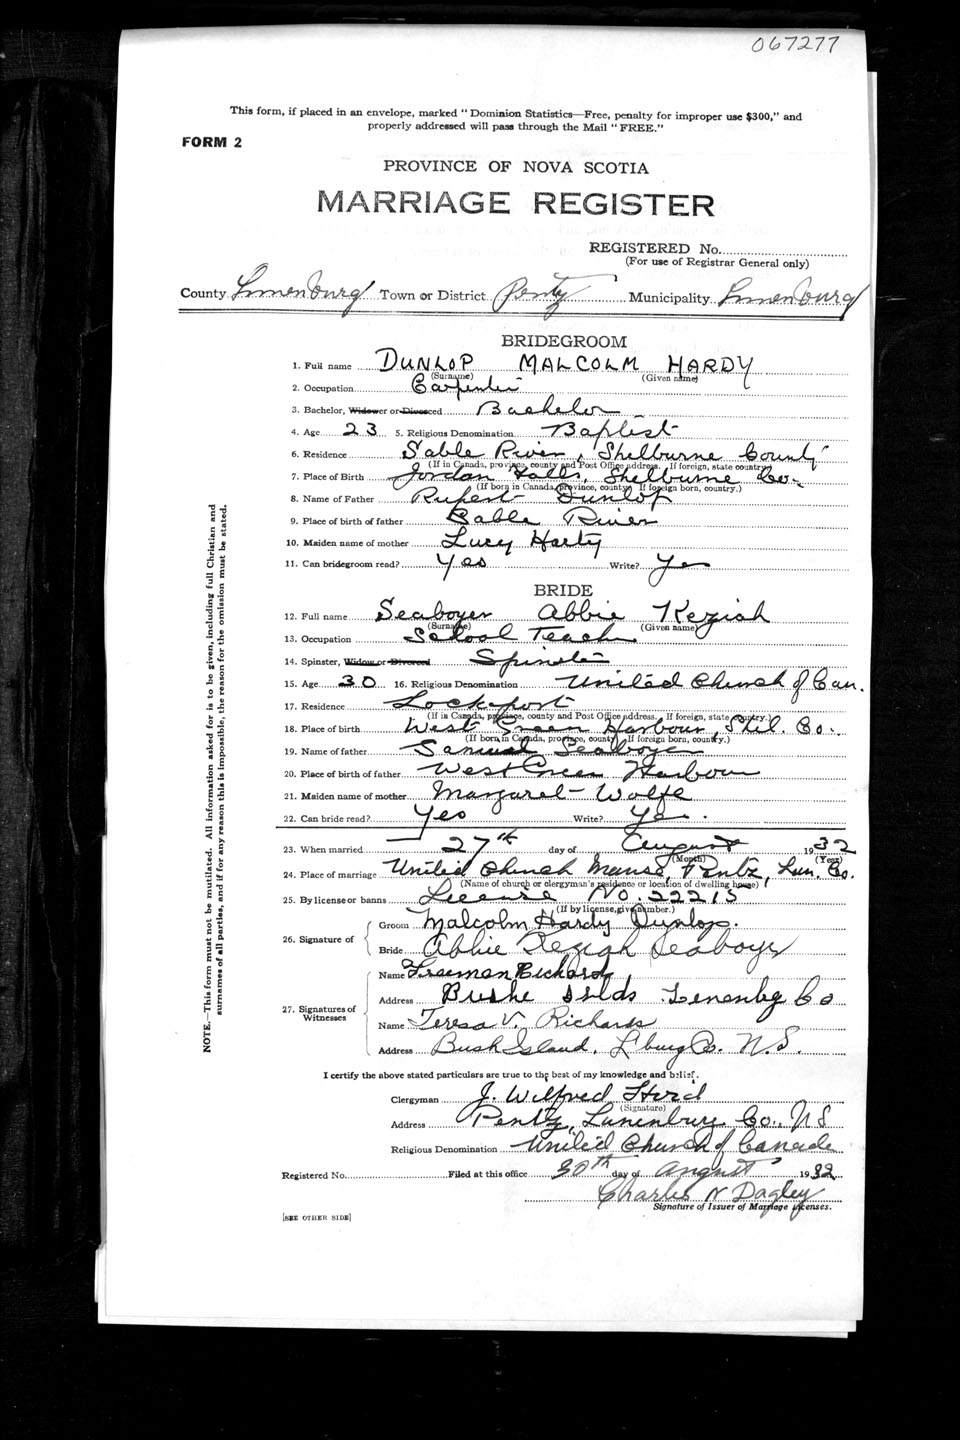 067277
This form, if placed in an envelope, marked "Dominion Statistics—Free, penalty for improper use $300," and
properly addressed will pass through the Mail "FREE."
FORM 2
PROVINCE OF NOVA SCOTIA
MARRIAGE REGISTER
REGISTERED No.
(For use of Registrar General only)
County Lunenburg Town or District Pentz Municipality Lunenburg
BRIDEGROOM
1. Full name DUNLOP MALCOLM HARDY
(Surname) (Given name)
2. Occupation Carpenter
3. Bachelor, Widower or Divorced Bachelor
4. Age 23 5. Religious Denomination Baptist
6. Residence Sable River, Shelburne County
(If in Canada, province, county and Post Office address. If foreign, state country.)
7. Place of Birth Jordan Falls, Shelburne Co.
(If born in Canada, province, county. If foreign born, country.)
8. Name of Father Rupert Dunlop
9. Place of birth of father Sable River
10. Maiden name of mother Lucy Harty
11. Can bridegroom read? Yes Write? Yes
BRIDE
12. Full name Seaboyer Abbie Keziah
(Surname) (Given name)
13. Occupation School Teach
14. Spinster, Widow or Divorced Spinster
15. Age 30 16. Religious Denomination United Church of Can.
17. Residence Lockeport
(If in Canada, province, county and Post Office address. If foreign, state country.)
18. Place of birth West Green Harbour, Shel. Co.
(If born in Canada, province, county. If foreign born, country.)
19. Name of father Samuel Seaboyer
20. Place of birth of father West Green Harbour
21. Maiden name of mother Margaret Wolfe
22. Can bride read? Yes Write? Yes.
23. When married 27th day of August 1932
(Month) (Year)
24. Place of marriage United Church Manse, Pentz, Lun. Co.
(Name of church or clergyman's residence or location of dwelling house)
25. By license or banns License No. 22215
(If by license, give number.)
26. Signature of Groom Malcolm Hardy Dunlop.
Bride Abbie Keziah Seaboyer
27. Signatures of Witnesses
Name Freeman Richards
Address Bushe Islds Lenenbg Co
Name Teresa V. Richards
Address Bush Island, L'burg Co. N.S.
I certify the above stated particulars are true to the best of my knowledge and belief.
Clergyman J. Wilfred Hird
(Signature)
Address Pentz, Lunenburg Co., N S
Religious Denomination United Church of Canada
Registered No. Filed at this office 30th day of August 1932
Charles N Dagley
Signature of Issuer of Marriage Licenses.
[SEE OTHER SIDE]
NOTE.—This form must not be mutilated. All information asked for is to be given, including full Christian and
surnames of all parties, and if for any reason this is impossible, the reason for the omission must be stated.